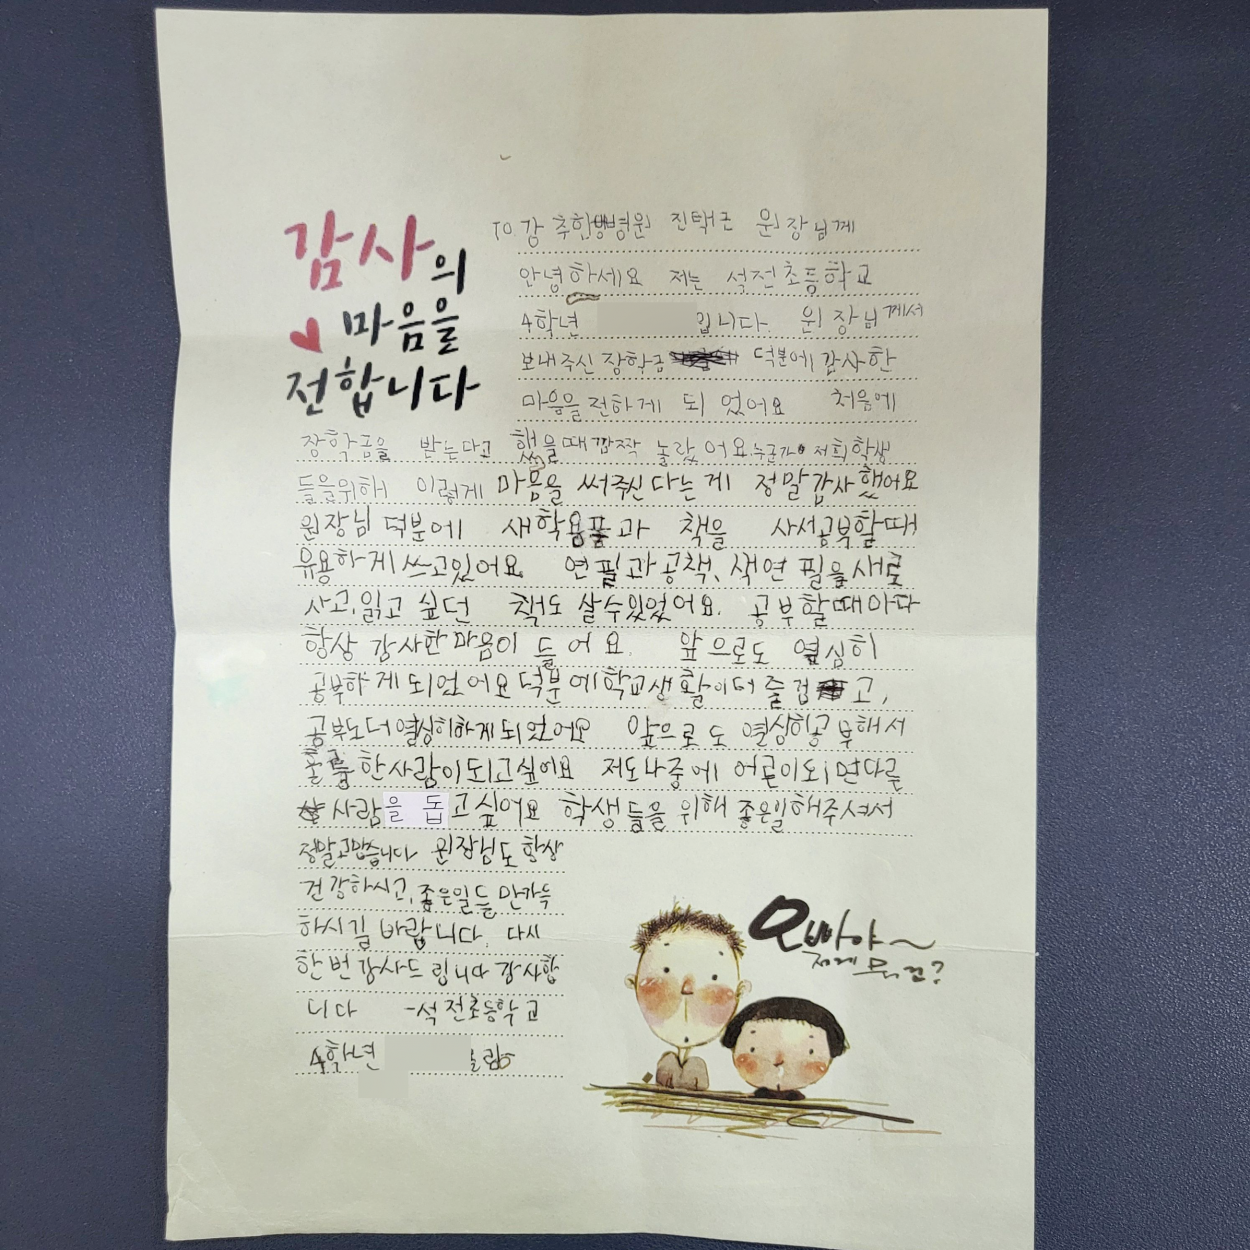 감사의
마음을
전합니다
TO 강 추합병원 진택근 원장님께
안녕하세요 저는 석전초등학교
4학년 입니다. 원장님께서
보내주신 장학금 덕분에 감사한
마음을 전하게 되었어요 처음에
장학금을 받는다고 했을때 깜짝 놀랐어요.누군가 저희학생
들을위해 이렇게 마음을 써주신다는게 정말감사했어요
원장님 덕분에 새학용품과 책을 사서공부할때
유용하게 쓰고있어요 연필과공책, 색연필을새로
사고,읽고 싶던 책도 살수있었어요. 공부할때마다
항상 감사한마음이 들어요. 앞으로도 열심히
공부하게되었어요덕분에학교생활이더 즐겁고,
공부도더열심히하게되었어요 앞으로도 열심히공부해서
훌륭한사람이되고싶어요 저도나중에 어른이되면다른
사람을 돕고싶어요 학생들을 위해 좋은일해주셔서
정말고맙습니다 원장님도항상
건강하시고,좋은일들만가득
하시길 바랍니다. 다시
한번감사드립니다 감사합
니다 -석전초등학교
4학년 올림
오빠야~
저게 뭐건?